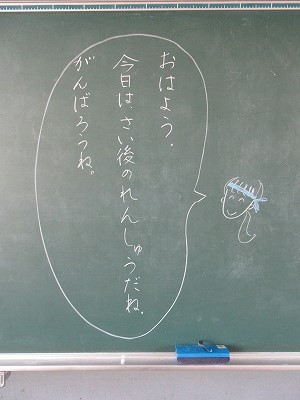 おはよう。
今日は、さい後のれんしゅうだね。
がんばろうね。